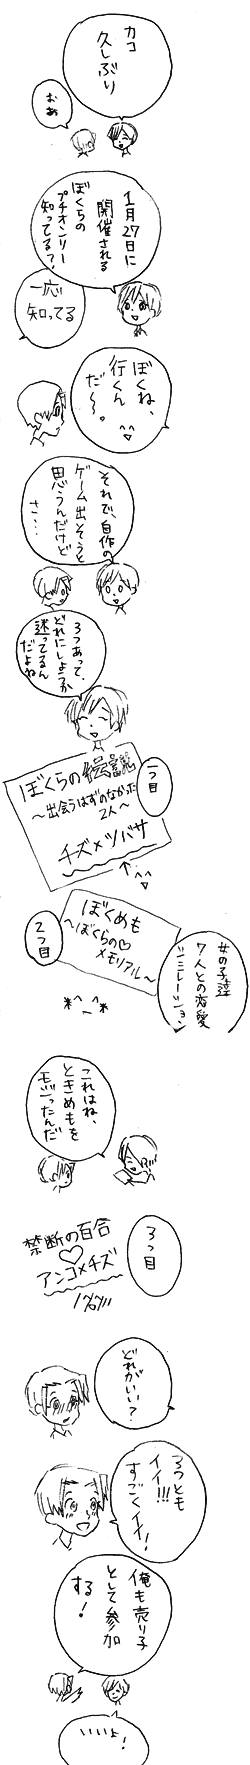 カコ
久しぶり
おぁ
1月27日に
開催される
ぼくらの
プチオンリー
知ってる?
一応
知ってる
ぼくね、
行くん
だ〜。
^▽^
それで、自作の
ゲーム出そうと
思うんだけど
さ…
3つあって、
どれにしようか
迷ってるん
だよね
一つ目
ぼくらの伝説
〜出会うはずのなかった
2人〜
チズ×ツバサ
↑^^
▽
2つ目
ぼくめも
〜ぼくらの♡
メモリアル〜
*^_^*
女の子達
7人との恋愛
シミュレーション
これはね、
ときめもを
モジったんだ
3つ目
禁断の百合
♡
アンコ×チズ
どれがいい?
3つとも
イイ!!!
すごくイイ!
俺も売り子
として参加
する!
いいよ!